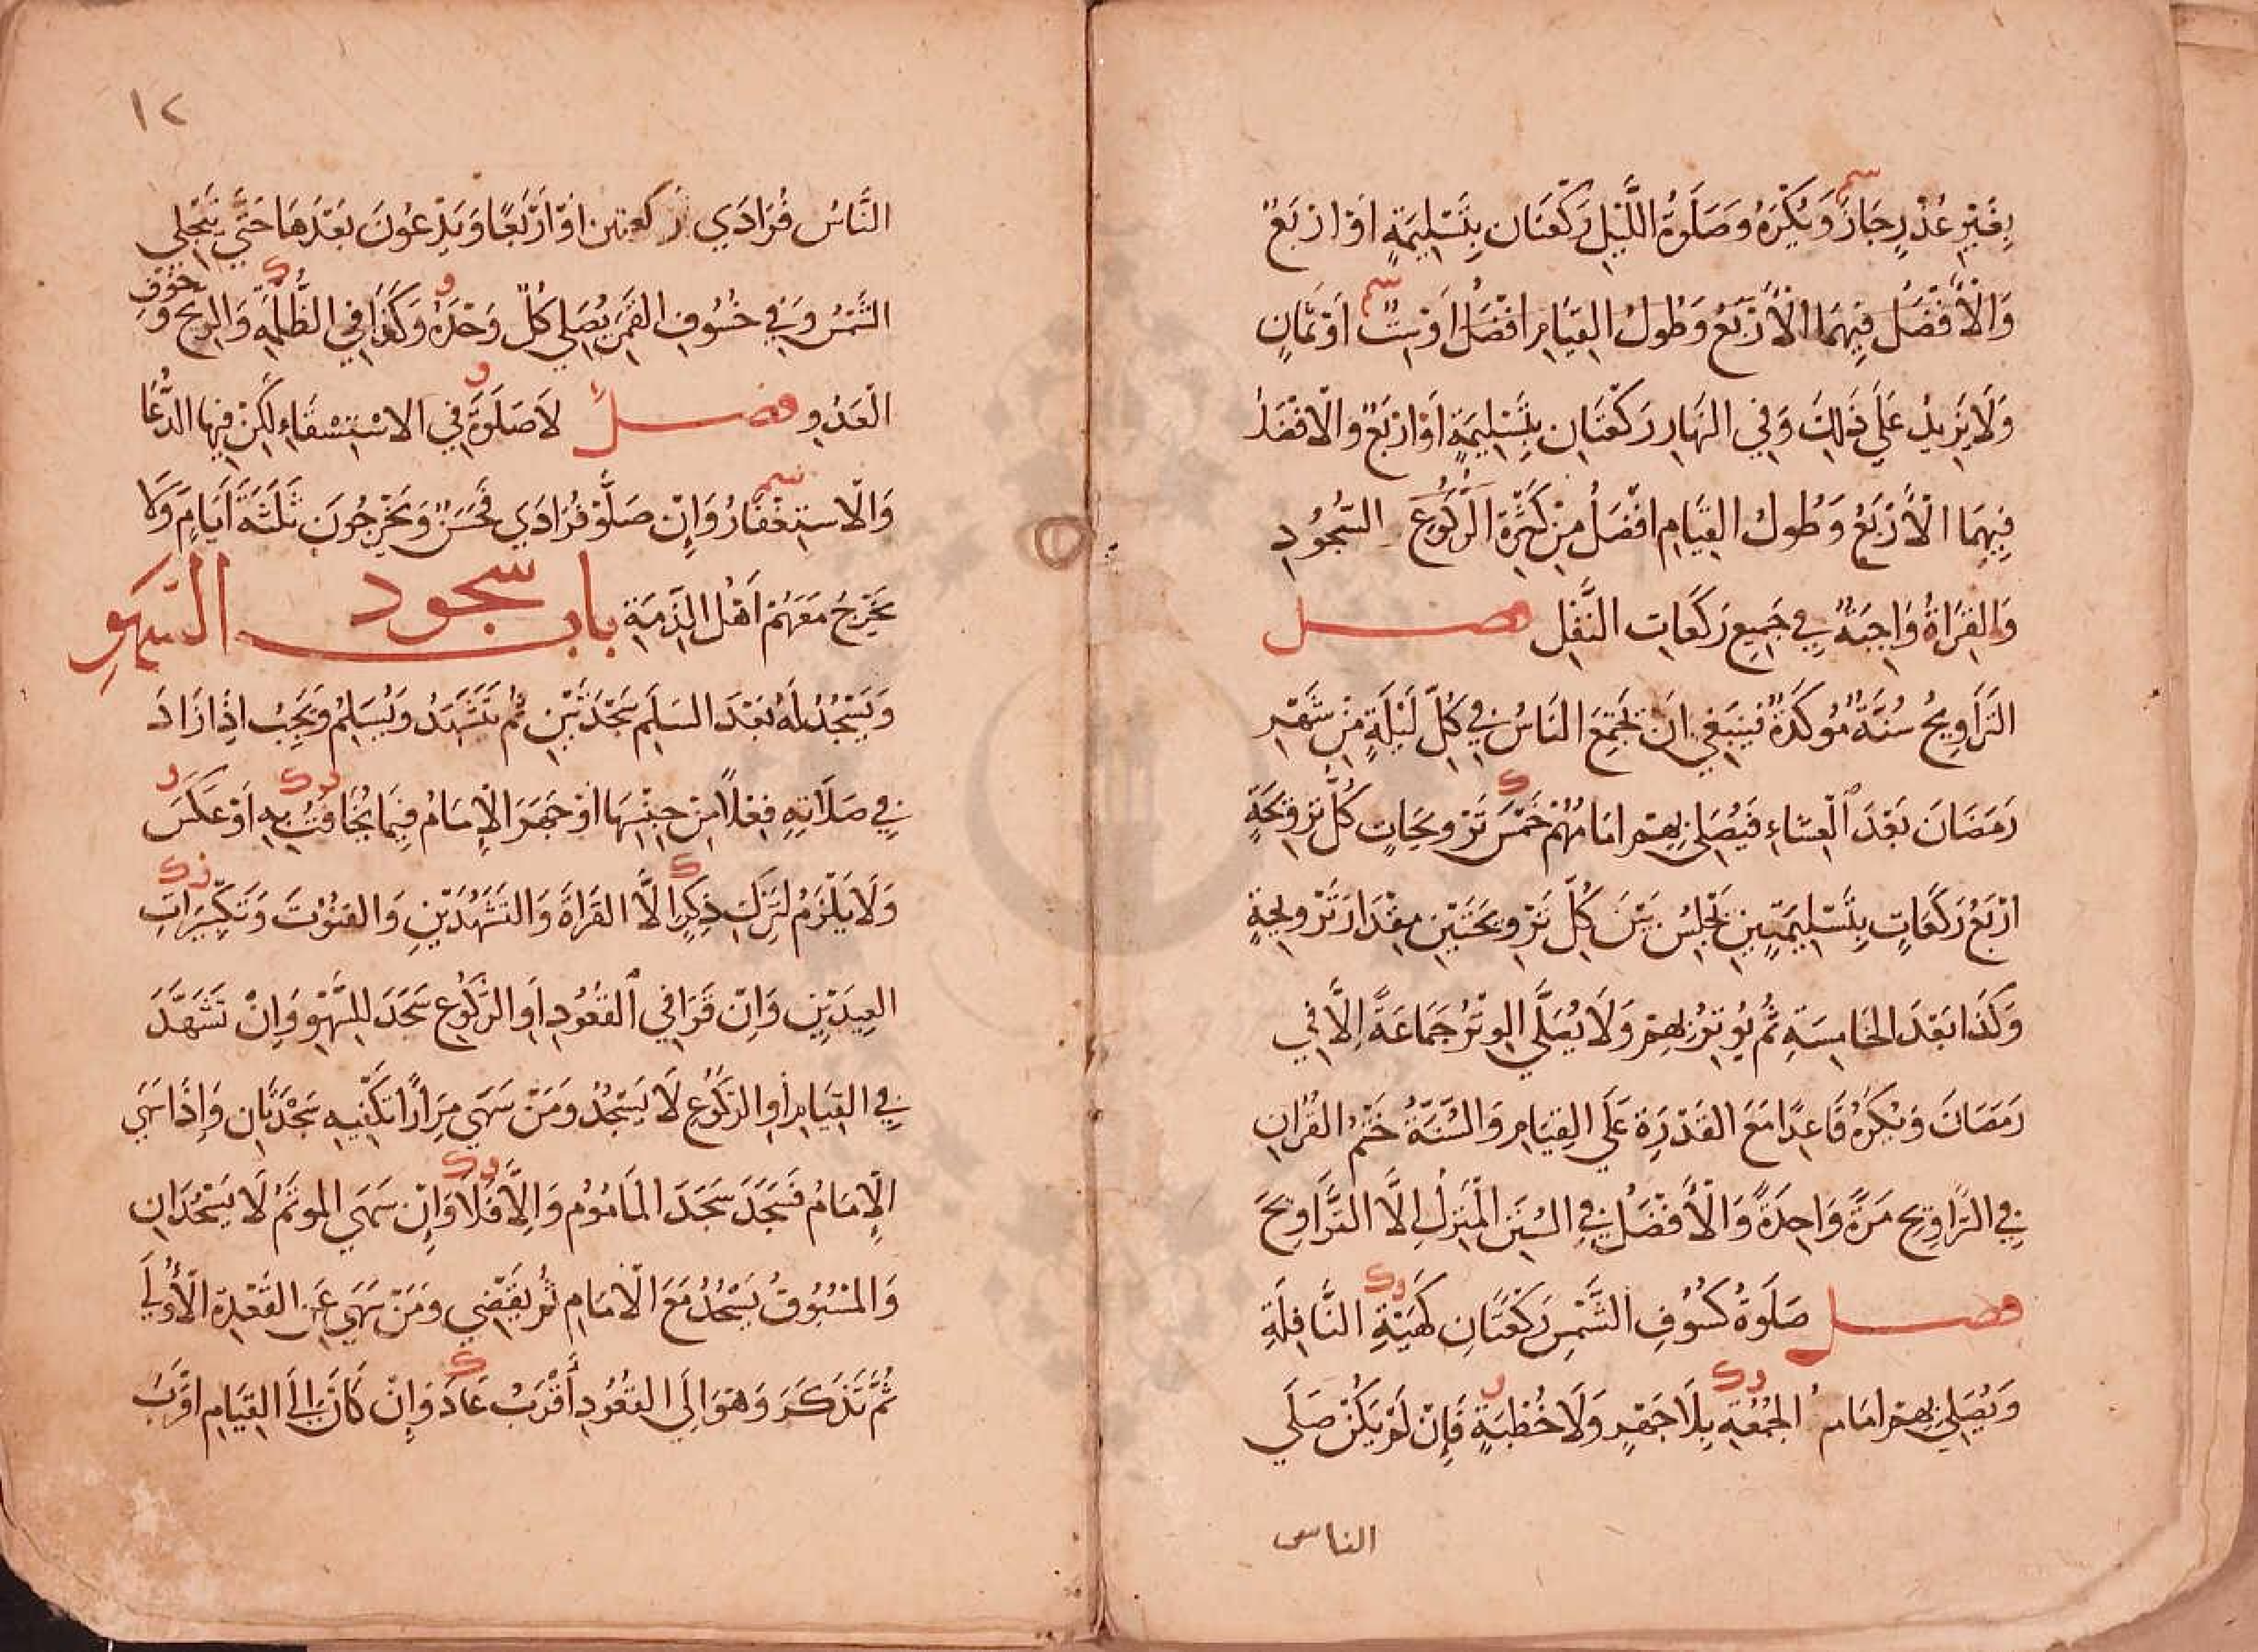 بِغَيْرِ عُذْرٍ جَازَ وَيُكْرَهُ وَصَلَوةُ اللَّيْلِ رَكْعَتَانِ بِتَسْلِيمَةٍ اَوْ ارْبَعٌ
وَالْأَفْضَلُ فِيهِمَا الْأَرْبَعُ وَطُولُ القِيَامِ افْضَلُ اَوْ سِتٌّ اَوْ ثَمَانٍ
وَلَا يَزِيدُ عَلَي ذَلِكَ وَفِي النَهَارِ رَكْعَتَانِ بِتَسْلِيمَةٍ اَوْ ارْبَعٌ وَالْافْضَلُ
فِيهِمَا الْأَرْبَعُ وَطُولُ القِيَامِ افْضَلُ مِنْ كَثْرَةِ الرُّكُوعِ السُّجُودِ
وَالقِرَاةُ وَاجِبَةٌ فِي جَمِيعِ رَكَعَاتِ النَّفْلِ فصل
التَرَاوِيحُ سُنَّةٌ مُوكَدَةٌ يَنبَغِي انَ يَجْتَمِعَ النَاسُ فِي كُلِّ لَيْلَةٍ مِنْ شَهْرِ
رَمَضَانَ بَعْدَ الْعِشَاءِ فَيُصَلِي بِهِمْ امَامُهُمْ خَمْسَ تَرْوِيحَاتٍ كُلُّ تَرْوِيحَةٍ
ارْبَعُ رَكَعَاتٍ بِتَسْلِيمَتَينِ يَجْلِسُ بَيْنَ كُلِّ تَرْوِيحَتَيْنِ مِقْدَارَ تَرْوِيحةٍ
وَكَذَا بَعْدَ الخَامِسَةِ ثُمَّ يُوتِرُ بِهِمْ وَلَا يُصَلَّي الوِتْرُ جَمَاعَةً اِلَّا فِي
رَمَضَانَ وَيُكْرَهُ قَاعِدًا مَعَ القُدْرَةِ عَلَي القِيَامِ وَالسُّنَّةُ خَتْمُ القُرْانِ
فِي التَرَاوِيحِ مَرَّةً وَاحِدَةً وَالْأَفْضَلُ فِي السُنَنِ الْمَنْزِلُ اِلَّا التَّرَاوِيحَ
فصل صَلَوةُ كُسُوفِ الشَّمْسِ رَكْعَتَانِ كَهَيْئَةِ النَّافِلَةِ
وَيُصَلِي بِهِمْ امَامُ الجُمُعَةِ بِلَا جَهْرٍ وَلَا خُطْبَةٍ فَاِنْ لَمْ يَكُنْ صَلَي
الناس
١٢
النَّاسُ فُرَادَي رَكعتين اَوْ ارْبَعًا وَيَدْعُونَ بَعْدَهَا حَتَّي تَنْجَلِي
الشَمْسُ وَفِي خُسُوفِ القَمَرِ يُصَلِي كُلٌّ وَحْدَهُ وَكَذَا فِي الظُّلْمَةِ وَالرِيحِ وَخَوْفِ
الْعَدُو فصل لَا صَلَوةَ فِي الِاسْتِسْقَاءِ لَكِنْ فِيهَا الدُّعَا
وَالْاستِغْفَارُ وَاِنْ صَلَّوْ فُرَادَي فَحَسَنٌ وَيَخْرُجُونَ ثَلَثَةَ اَيَامٍ وَلَا
يَخْرُجُ مَعَهُمْ اَهْلُ الذِمَةِ باب سجود السَهو
وَيَسْجُدُ لَهُ بَعْدَ السَلَمِ سَجْدَتَيْنِ ثُمَّ يَتَشَهَدُ وَيُسَلِمُ وَيَجِبُ اِذَا زَادَ
فِي صَلَاتِهِ فِعْلًا مِنْ جِنْسِهَا اوْ جَهَرَ الْاِمَامُ فِيمَا يُخَافَتُ بِهِ اَوْ عَكَسَ
وَلَا يَلْزَمُ لِتَرْكِ ذِكْرٍ اِلَّا القَرَاةَ وَالتَشَهُدَيْنِ وَالقُنُوْتَ وَتَكْبِيرَاتِ
العِيدَيْنِ وَاِنْ قَرَا فِي الْقُعُودِ اَوِ الرُّكُوعِ سَجَدَ لِلسَّهْوِ وَاِنْ تَشَهَّدَ
فِي القِيَامِ اَوِ الرُكُوعِ لَا يَسْجُدُ وَمَنْ سَهَي مِرَارًا تَكْفِيهِ سَجْدَتَانِ وَاِذَا سَهَي
الْاِمَامُ فَسَجَدَ سَجَدَ المَامُومُ وَاِلَّا فَلَا وَاِنْ سَهَي الموتَمُ لَا يَسْجُدَانِ
وَالمَسْبُوقُ يَسْجُدُ مَعَ الْامَامِ ثُمَّ يَقْضِي وَمَنْ سَهَي عَنِ القَعْدَةِ الْأُولَي
ثُمَّ تَذَكَرَ وَهوَ اِلَي القُعُودِ أَقْرَبُ عَادَ وَاِنْ كَانَ اِلَي القِيَامِ اقْرَبَ